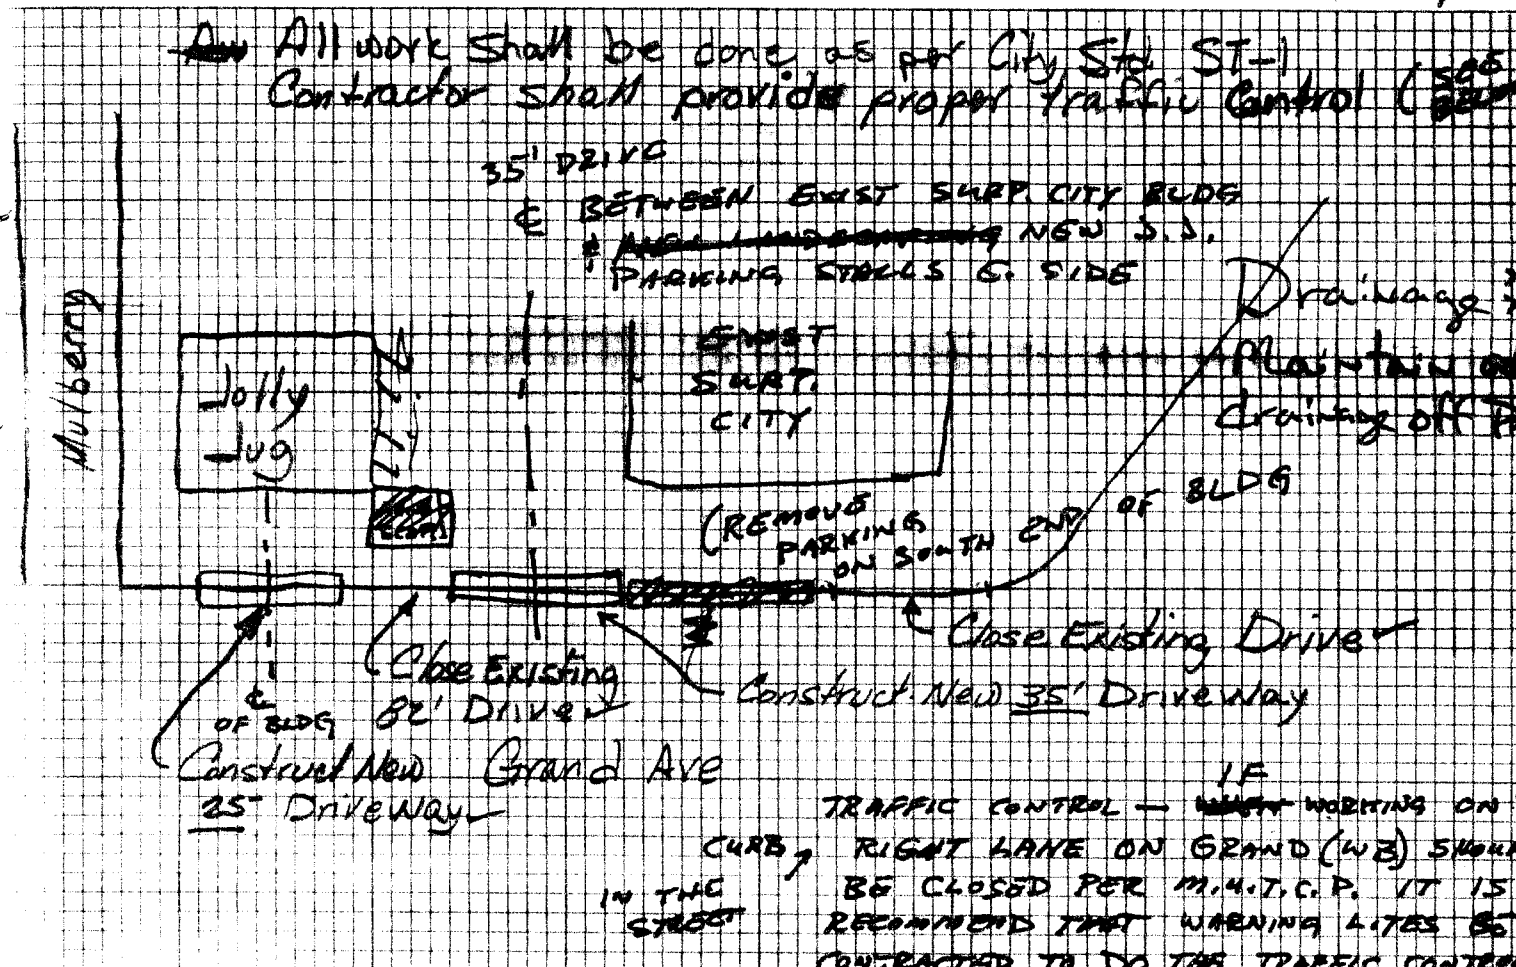 All work shall be done as per City Std ST-1
Contractor shall provide proper traffic control (see
35' DRIVE
℄ BETWEEN EXIST SURP. CITY BLDG
& NEW S.S.
PARKING STALLS E. SIDE
Drainage
Maintain
drainage off
Mulberry
Jolly
Jug
EXIST
SURP.
CITY
(REMOVE
PARKING
ON SOUTH END OF BLDG
Close Existing Drive
Close Existing
82' Drive
Construct New 35' Driveway
℄
OF BLDG
Construct New
25' Driveway
Grand Ave
IF
TRAFFIC CONTROL — WORKING ON
CURB, RIGHT LANE ON GRAND (WB)
IN THE
STREET
BE CLOSED PER M.U.T.C.P. IT IS
RECOMMEND THAT WARNING LITES BE
CONTRACTED TO DO THE TRAFFIC CONTROL